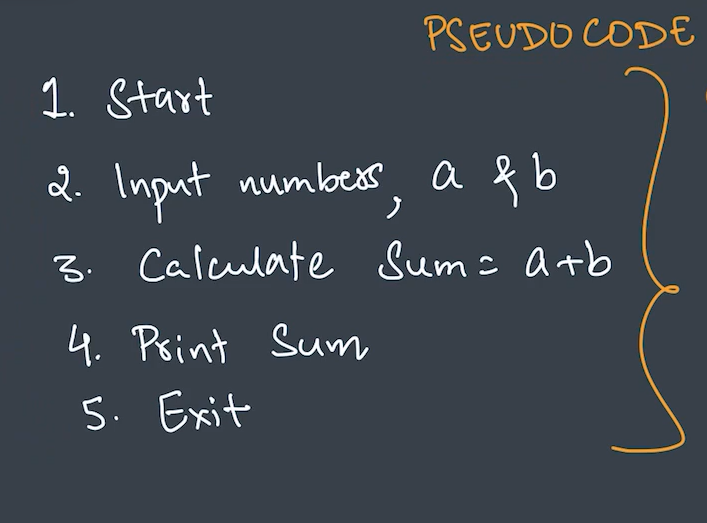 PSEUDO CODE
1. Start
2. Input numbers, a & b
3. Calculate Sum = a+b
4. Print Sum
5. Exit